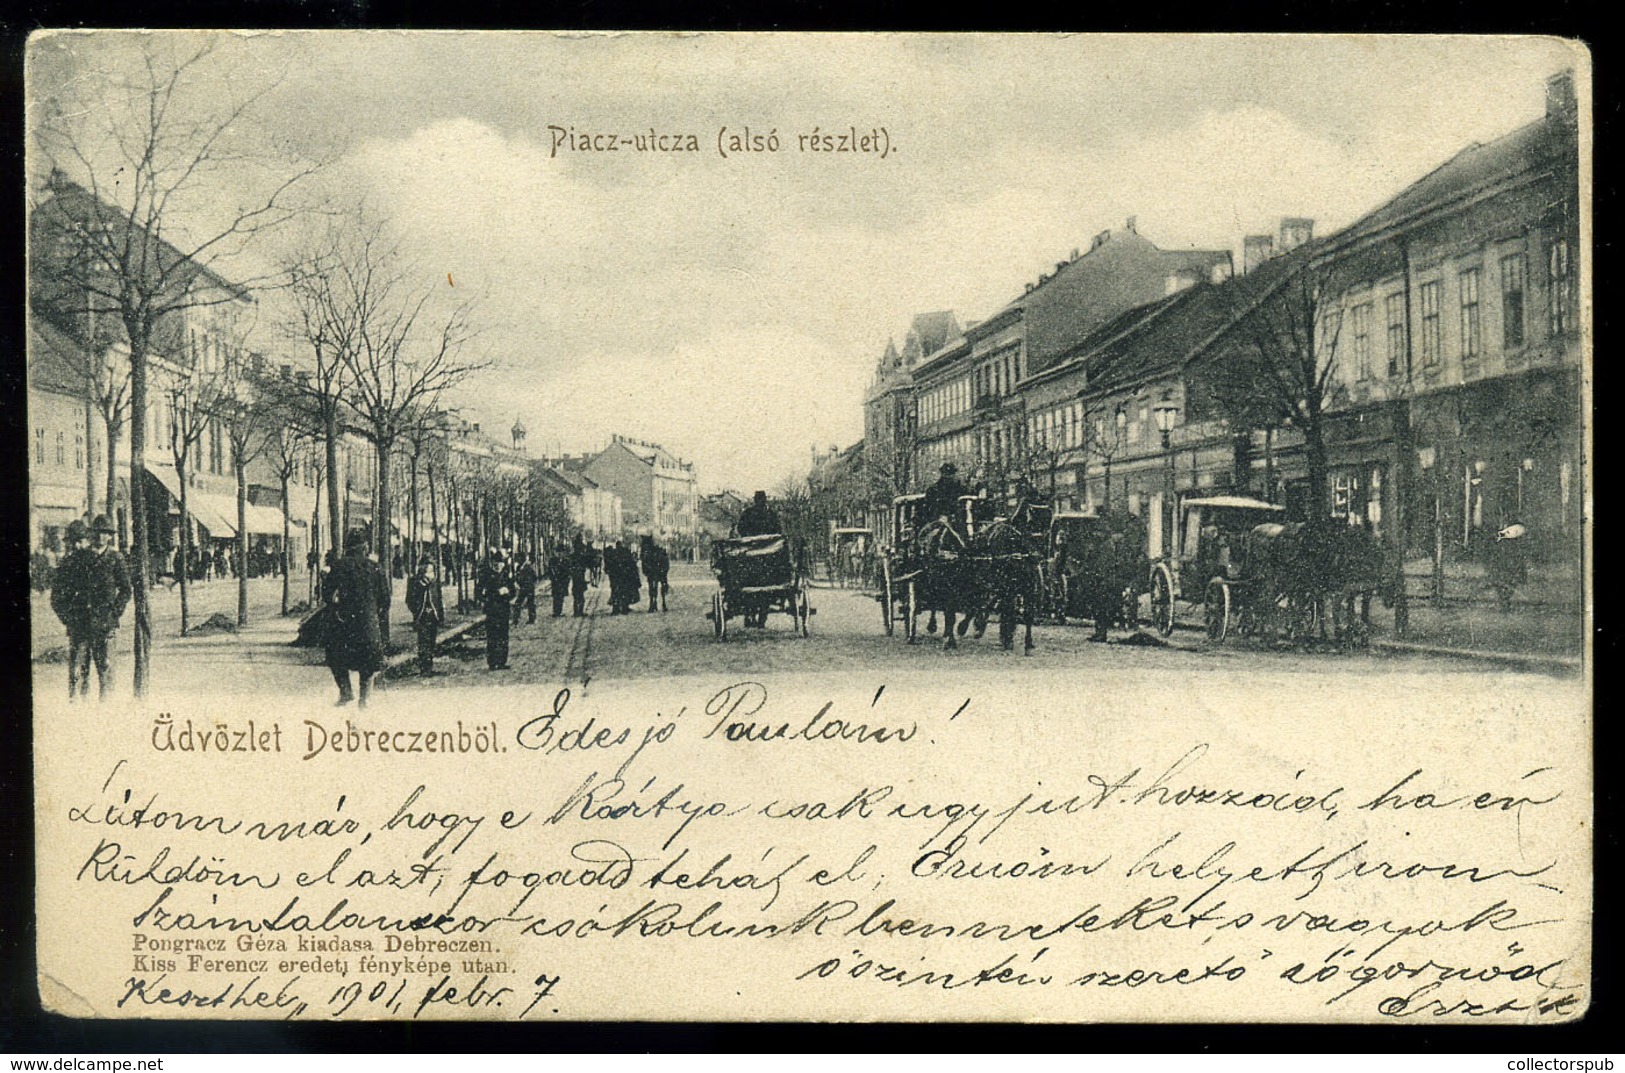 Piacz-utcza (alsó részlet).
Üdvözlet Debreczenböl. Édes jó Paulám!
Látom már, hogy e kártya csak ugy jut hozzád, ha én
küldöm el azt, fogadd tehát el, Ernöm helyett irom
Számtalanszor csókolunk benneteket, s vagyok
Pongracz Géza kiadasa Debreczen.
Kiss Ferencz eredeti fényképe utan.
őszintén szerető sógornőd
Keszthely, 1901, febr. 7.
HELYZET 1073
collectorspub